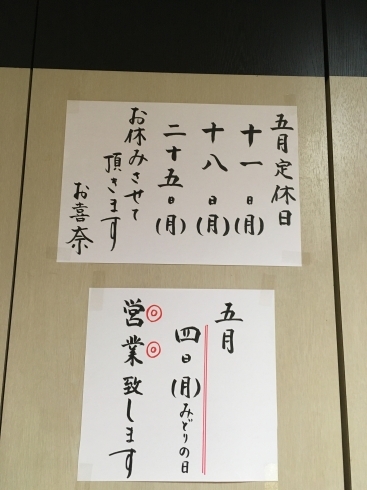 五月定休日
十一日(月)
十八日(月)
二十五日(月)
お休みさせて
頂きます
お喜奈
五月
四日(月)みどりの日
営業致します